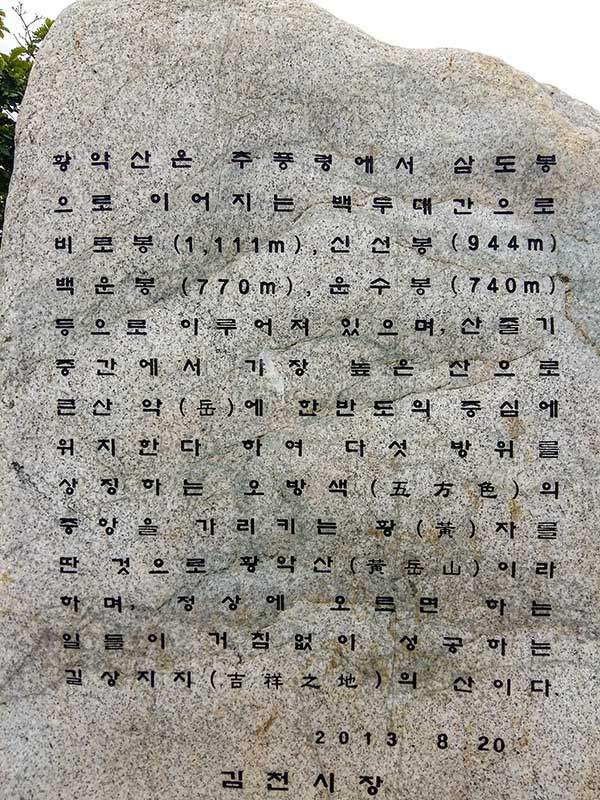 황악산은 추풍령에서 삼도봉
으로 이어지는 백두대간으로
비로봉(1,111m), 신선봉(944m)
백운봉(770m), 운수봉(740m)
등으로 이루어져 있으며, 산줄기
중간에서 가장 높은 산으로
큰산 악(岳)에 한반도의 중심에
위치한다 하여 다섯 방위를
상징하는 오방색(五方色)의
중앙을 가리키는 황(黃)자를
딴 것으로 황악산(黃岳山)이라
하며, 정상에 오르면 하는
일들이 거침없이 성공하는
길상지지(吉祥之地)의 산이다
2013. 8.20
김천시장